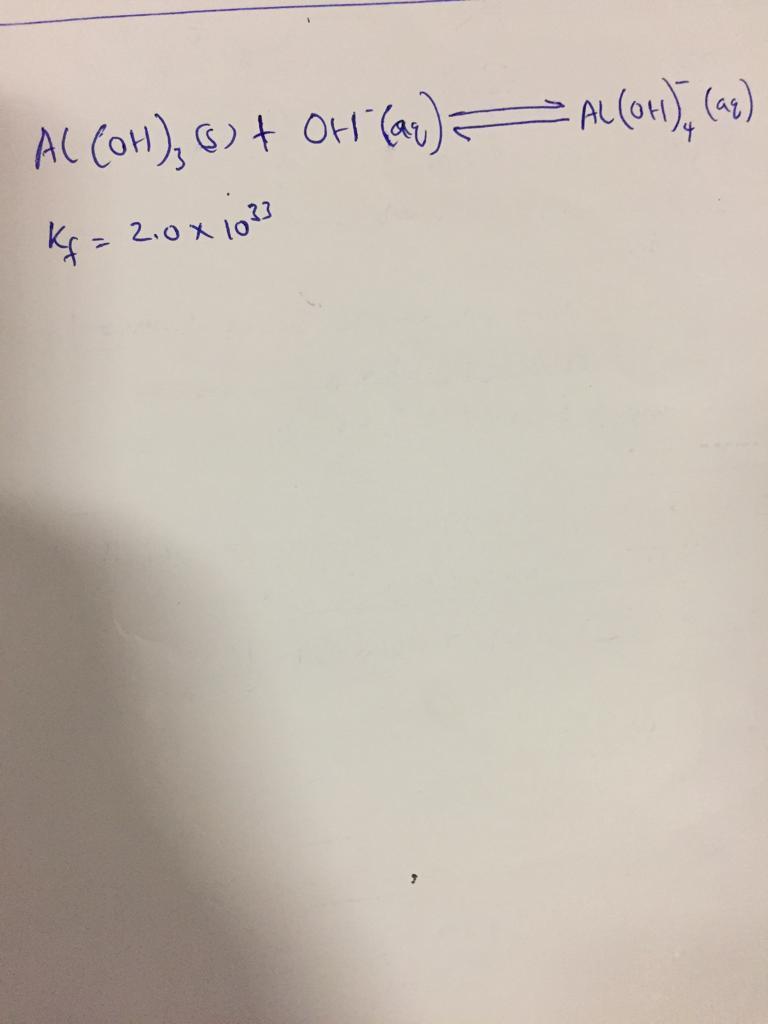 Al(OH)₃(s) + OH⁻(aq) ⇌ Al(OH)₄⁻(aq)
Kf = 2.0 × 10³³